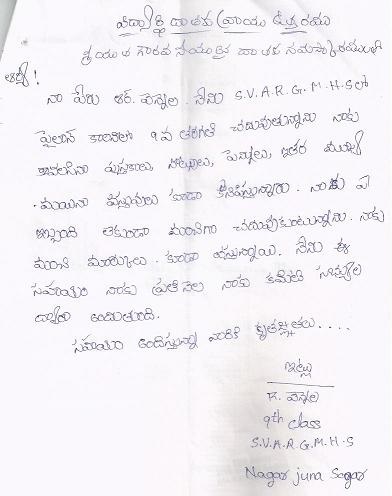 విద్యార్థి దాతకు వ్రాయు ఉత్తరము
శ్రీయుత గౌరవనీయులైన దాతకు నమస్కారములు
ఆర్య!
నా పేరు ఆర్. వెన్నెల. నేను S.V.A.R.G.M.H.S లో
పైలాన్ కాలనీలో 9వ తరగతి చదువుతున్నాను నాకు
కావలసిన పుస్తకాలు, నోట్సులు, పెన్నులు, ఇతర ముఖ్య
-మయిన వస్తువులు కూడా కొనిస్తున్నారు. నాకు ఏ
ఇబ్బంది లేకుండా మంచిగా చదువుకుంటున్నాను. నాకు
మంచి మార్కులు. కూడా వస్తున్నాయి. నేను ఈ
సహాయం నాకు ప్రతి నెల నాకు కమిటి సార్వుల
ద్వారా అందుతుంది.
సహాయం అందిస్తున్న వారికి కృతజ్ఞతలు....
ఇట్లు
R. వెన్నెల
9th class
S.V.A.R.G.M.H.S
Nagar juna Sagar